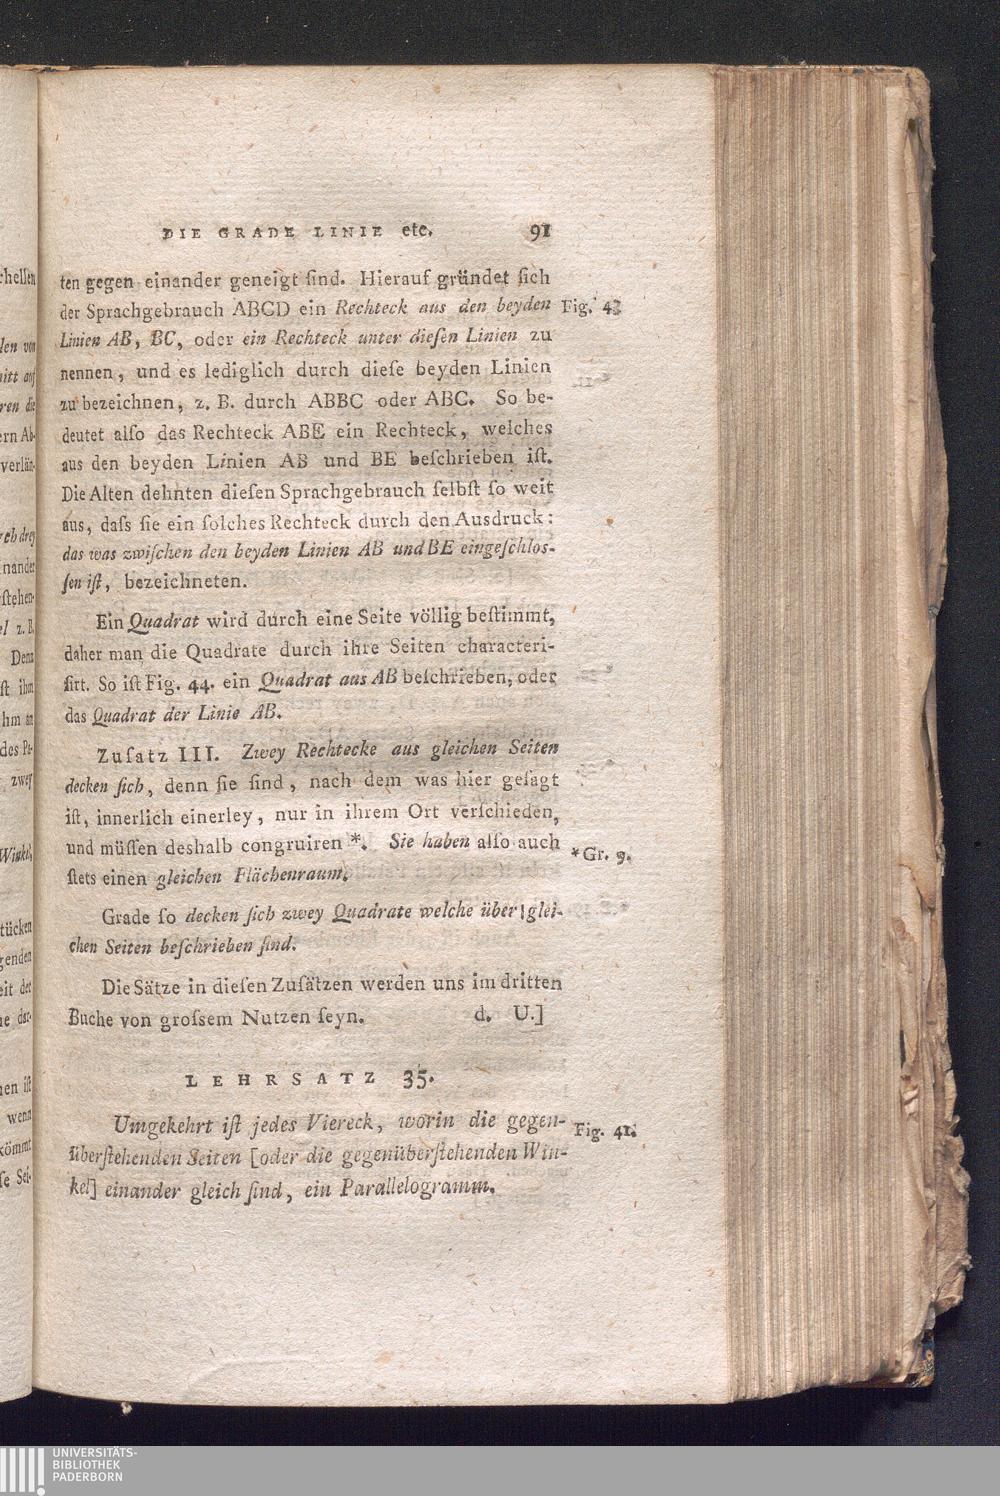 DIE GRADE LINIE etc. 91
ten gegen einander geneigt ſind. Hierauf gründet ſich
der Sprachgebrauch ABCD ein Rechteck aus den beyden Fig. 43
Linien AB, BC, oder ein Rechteck unter dieſen Linien zu
nennen, und es lediglich durch dieſe beyden Linien
zu bezeichnen, z. B. durch ABBC oder ABC. So be-
deutet alſo das Rechteck ABE ein Rechteck, welches
aus den beyden Linien AB und BE beſchrieben iſt.
Die Alten dehnten dieſen Sprachgebrauch ſelbſt ſo weit
aus, daſs ſie ein ſolches Rechteck durch den Ausdruck:
das was zwiſchen den beyden Linien AB und BE eingeſchloſ-
ſen iſt, bezeichneten.
Ein Quadrat wird durch eine Seite völlig beſtimmt,
daher man die Quadrate durch ihre Seiten characteri-
ſirt. So iſt Fig. 44. ein Quadrat aus AB beſchrieben, oder
das Quadrat der Linie AB.
Zuſatz III. Zwey Rechtecke aus gleichen Seiten
decken ſich, denn ſie ſind, nach dem was hier geſagt
iſt, innerlich einerley, nur in ihrem Ort verſchieden,
und müſſen deshalb congruiren *. Sie haben alſo auch *Gr. 9.
ſtets einen gleichen Flächenraum.
Grade ſo decken ſich zwey Quadrate welche über glei-
chen Seiten beſchrieben ſind.
Die Sätze in dieſen Zuſätzen werden uns im dritten
Buche von groſsem Nutzen ſeyn. d. U.]
LEHRSATZ 35.
Umgekehrt iſt jedes Viereck, worin die gegen- Fig. 41.
überſtehenden Seiten [oder die gegenüberſtehenden Win-
kel] einander gleich ſind, ein Parallelogramm.
UNIVERSITÄTS-
BIBLIOTHEK
PADERBORN